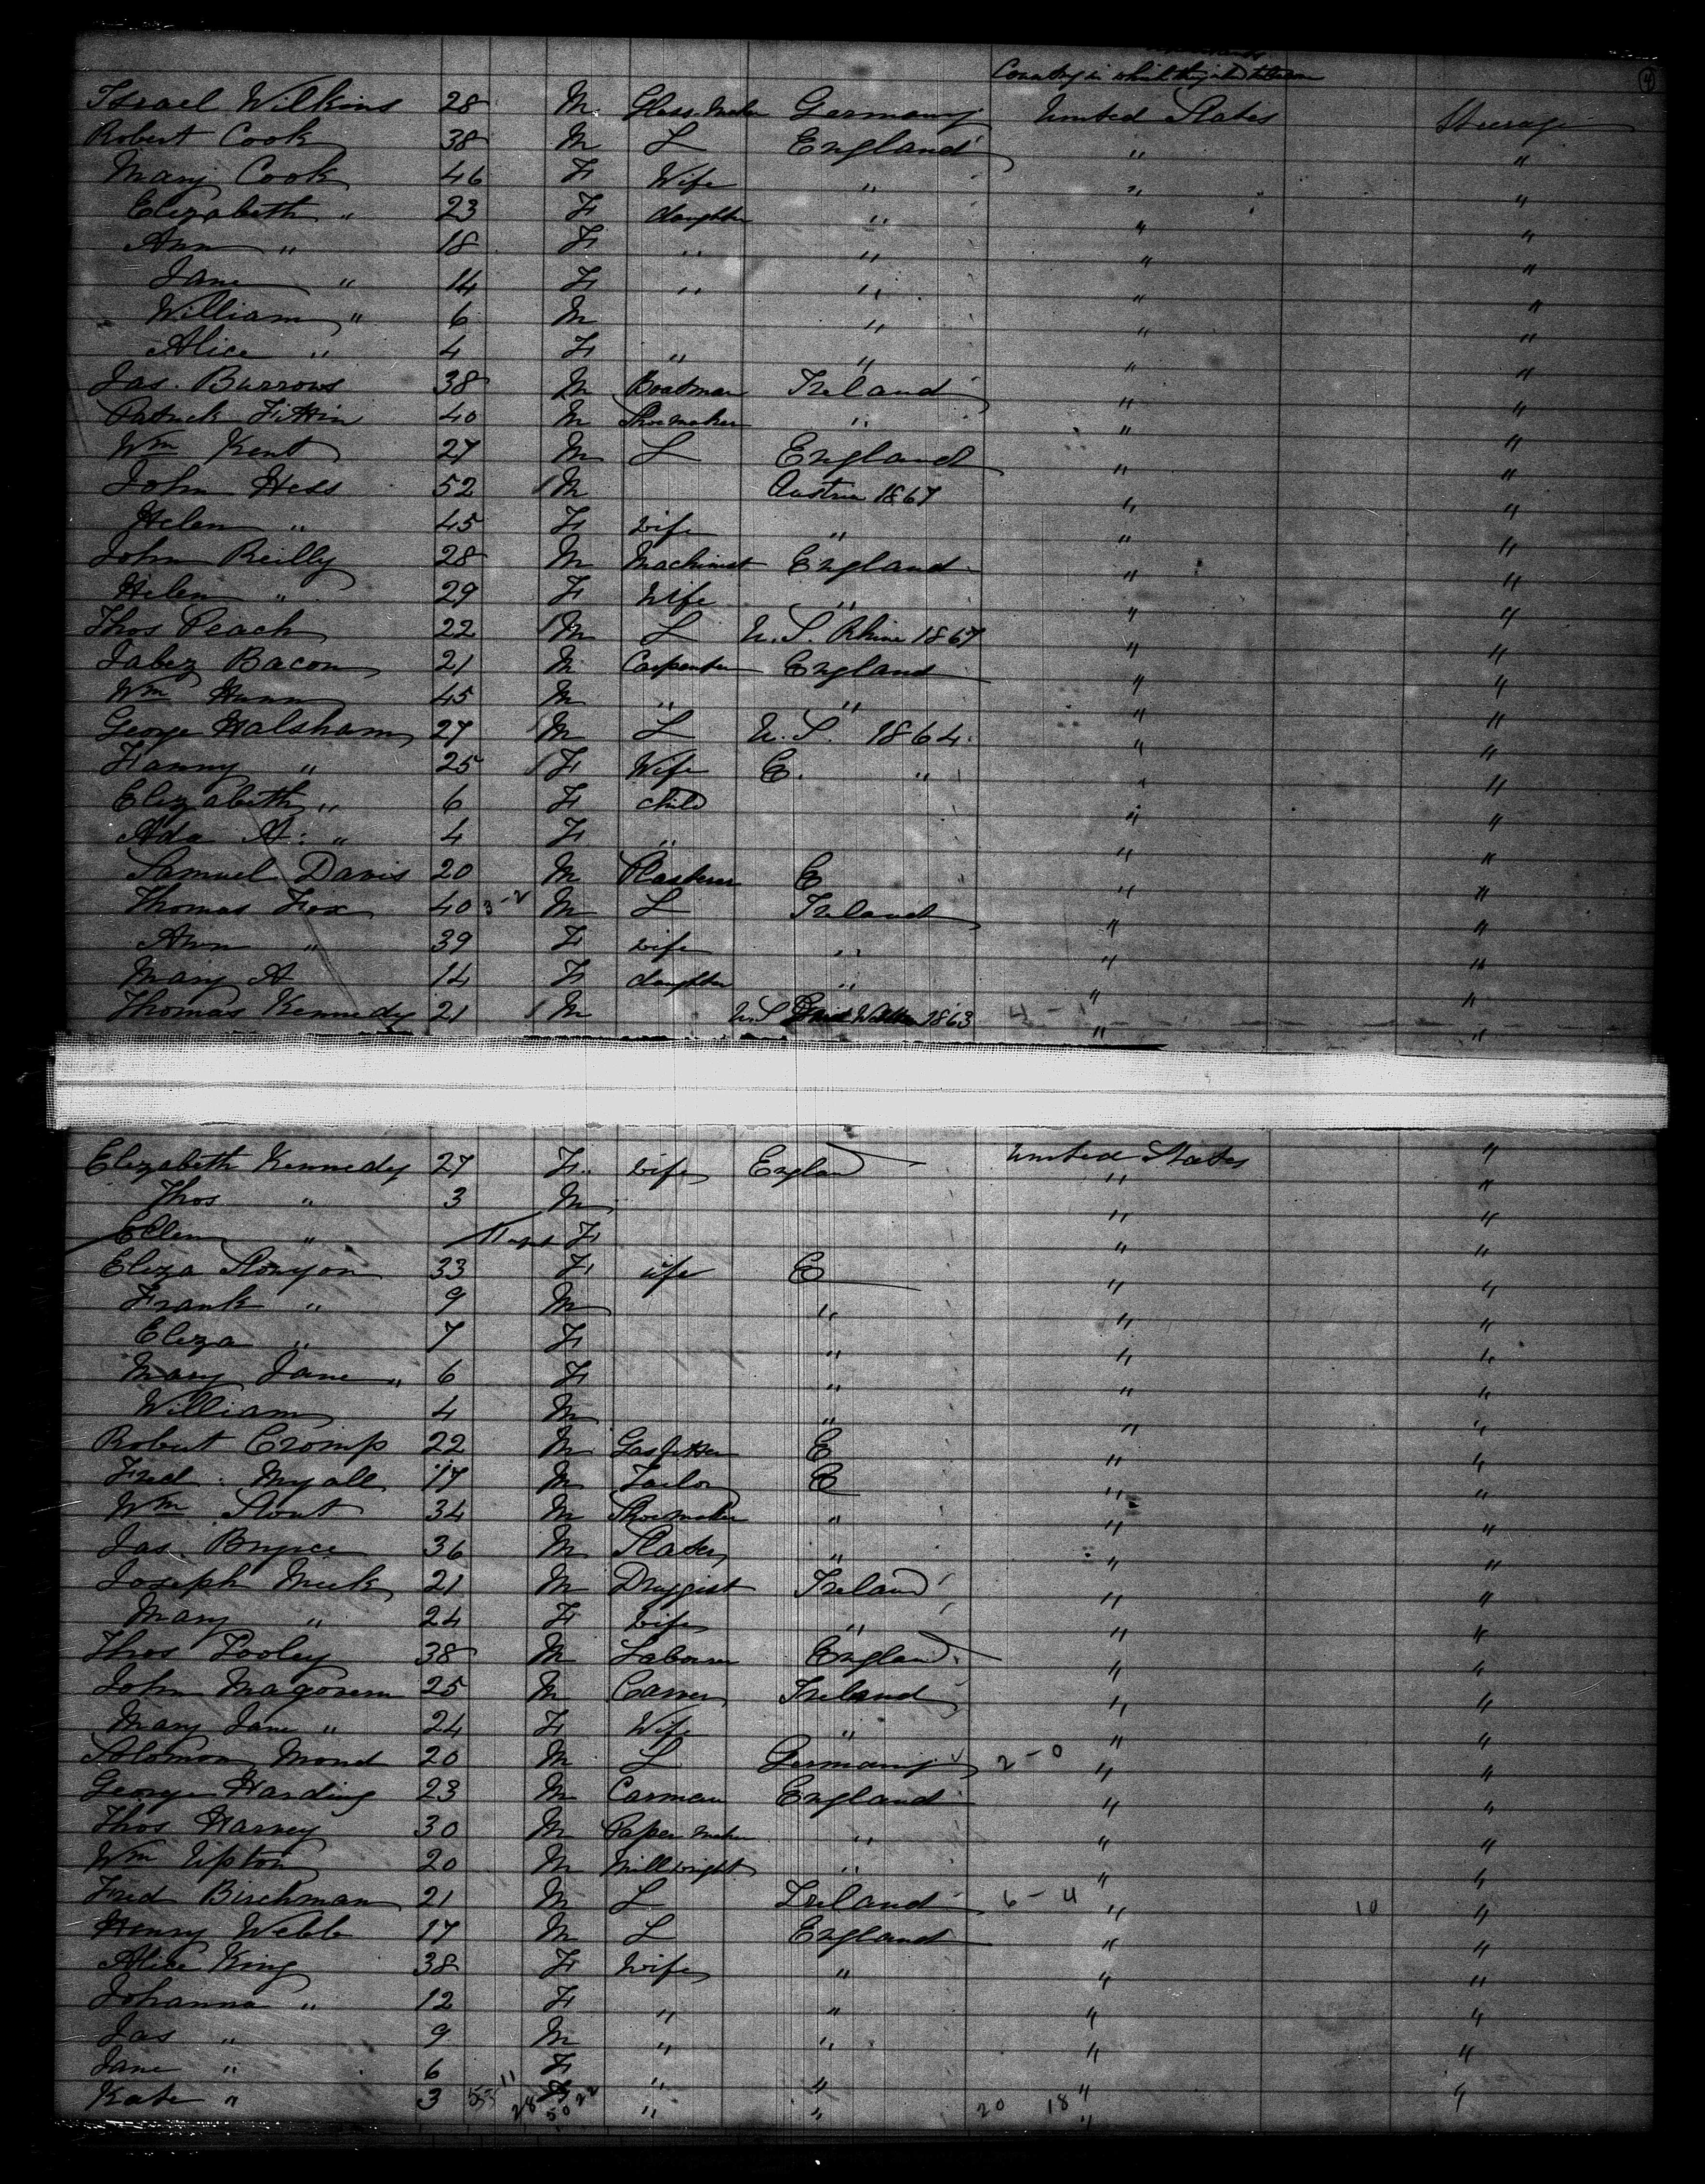 Country in which they intend to
4
Israel Wilkins 28 M Glass Maker Germany United States Steerage
Robert Cook 38 M L England " "
Mary Cook 46 F Wife " " "
Elizabeth " 23 F daughter " " "
Ann " 18 F " " " "
Jane " 14 F " " " "
William " 6 M " " "
Alice " 4 F " " " "
Jas. Burrows 38 M Boatman Ireland " "
Patrick 40 M Shoemaker " " "
Wm Kent 27 M L England " "
John Hess 52 M Austria 1867 " "
Helen " 45 F wife " " "
John Reilly 28 M Machinist England " "
Helen " 29 F Wife " " "
Thos Peach 22 M L U.S. Rhine 1867 " "
Jabez Bacon 21 M Carpenter England " "
Wm Hunn 45 M " " " "
George Halsham 27 M L U.S. 1864 " "
Fanny " 25 F Wife E. " " "
Elizabeth " 6 F child " "
Ada A. " 4 F " " "
Samuel Davis 20 M Plasterer E " "
Thomas Fox 40 3-2 M L Ireland " "
Ann " 39 F wife " " "
Mary A 14 F daughter " " "
Thomas Kennedy 21 M U.S 1863 4-1 " "
Elizabeth Kennedy 27 F wife England United States "
Thos " 3 M " "
Ellen " 11 F " "
Eliza 33 F wife E " "
Frank " 9 M " " "
Eliza " 7 F " " "
Mary Jane " 6 F " " "
William 4 M " " "
Robert Cromp 22 M Gasfitter E " "
Fred. Myall 17 M Tailor E " "
Wm Stout 34 M Shoemaker " " "
Jas. Bryce 36 M Slater " " "
Joseph Meek 21 M Druggist Ireland " "
Mary " 24 F wife " " "
Thos Pooley 38 M Labourer England " "
John Magovern 25 M Carver Ireland " "
Mary Jane " 24 F Wife " " "
Solomon Mond 20 M L Germany 2-0 " "
George Harding 23 M Carman England " "
Thos Harvey 30 M Paper Maker " " "
Wm Upton 20 M Millwright " " "
Fred Birchman 21 M L Ireland 6-4 " 10 "
Henry Webb 17 M L England " "
Alice King 38 F wife " " "
Johanna " 12 F " " " "
Jas " 9 M " " " "
Jane " 6 F " " " "
Kate " 3 F " " 20 18 " "